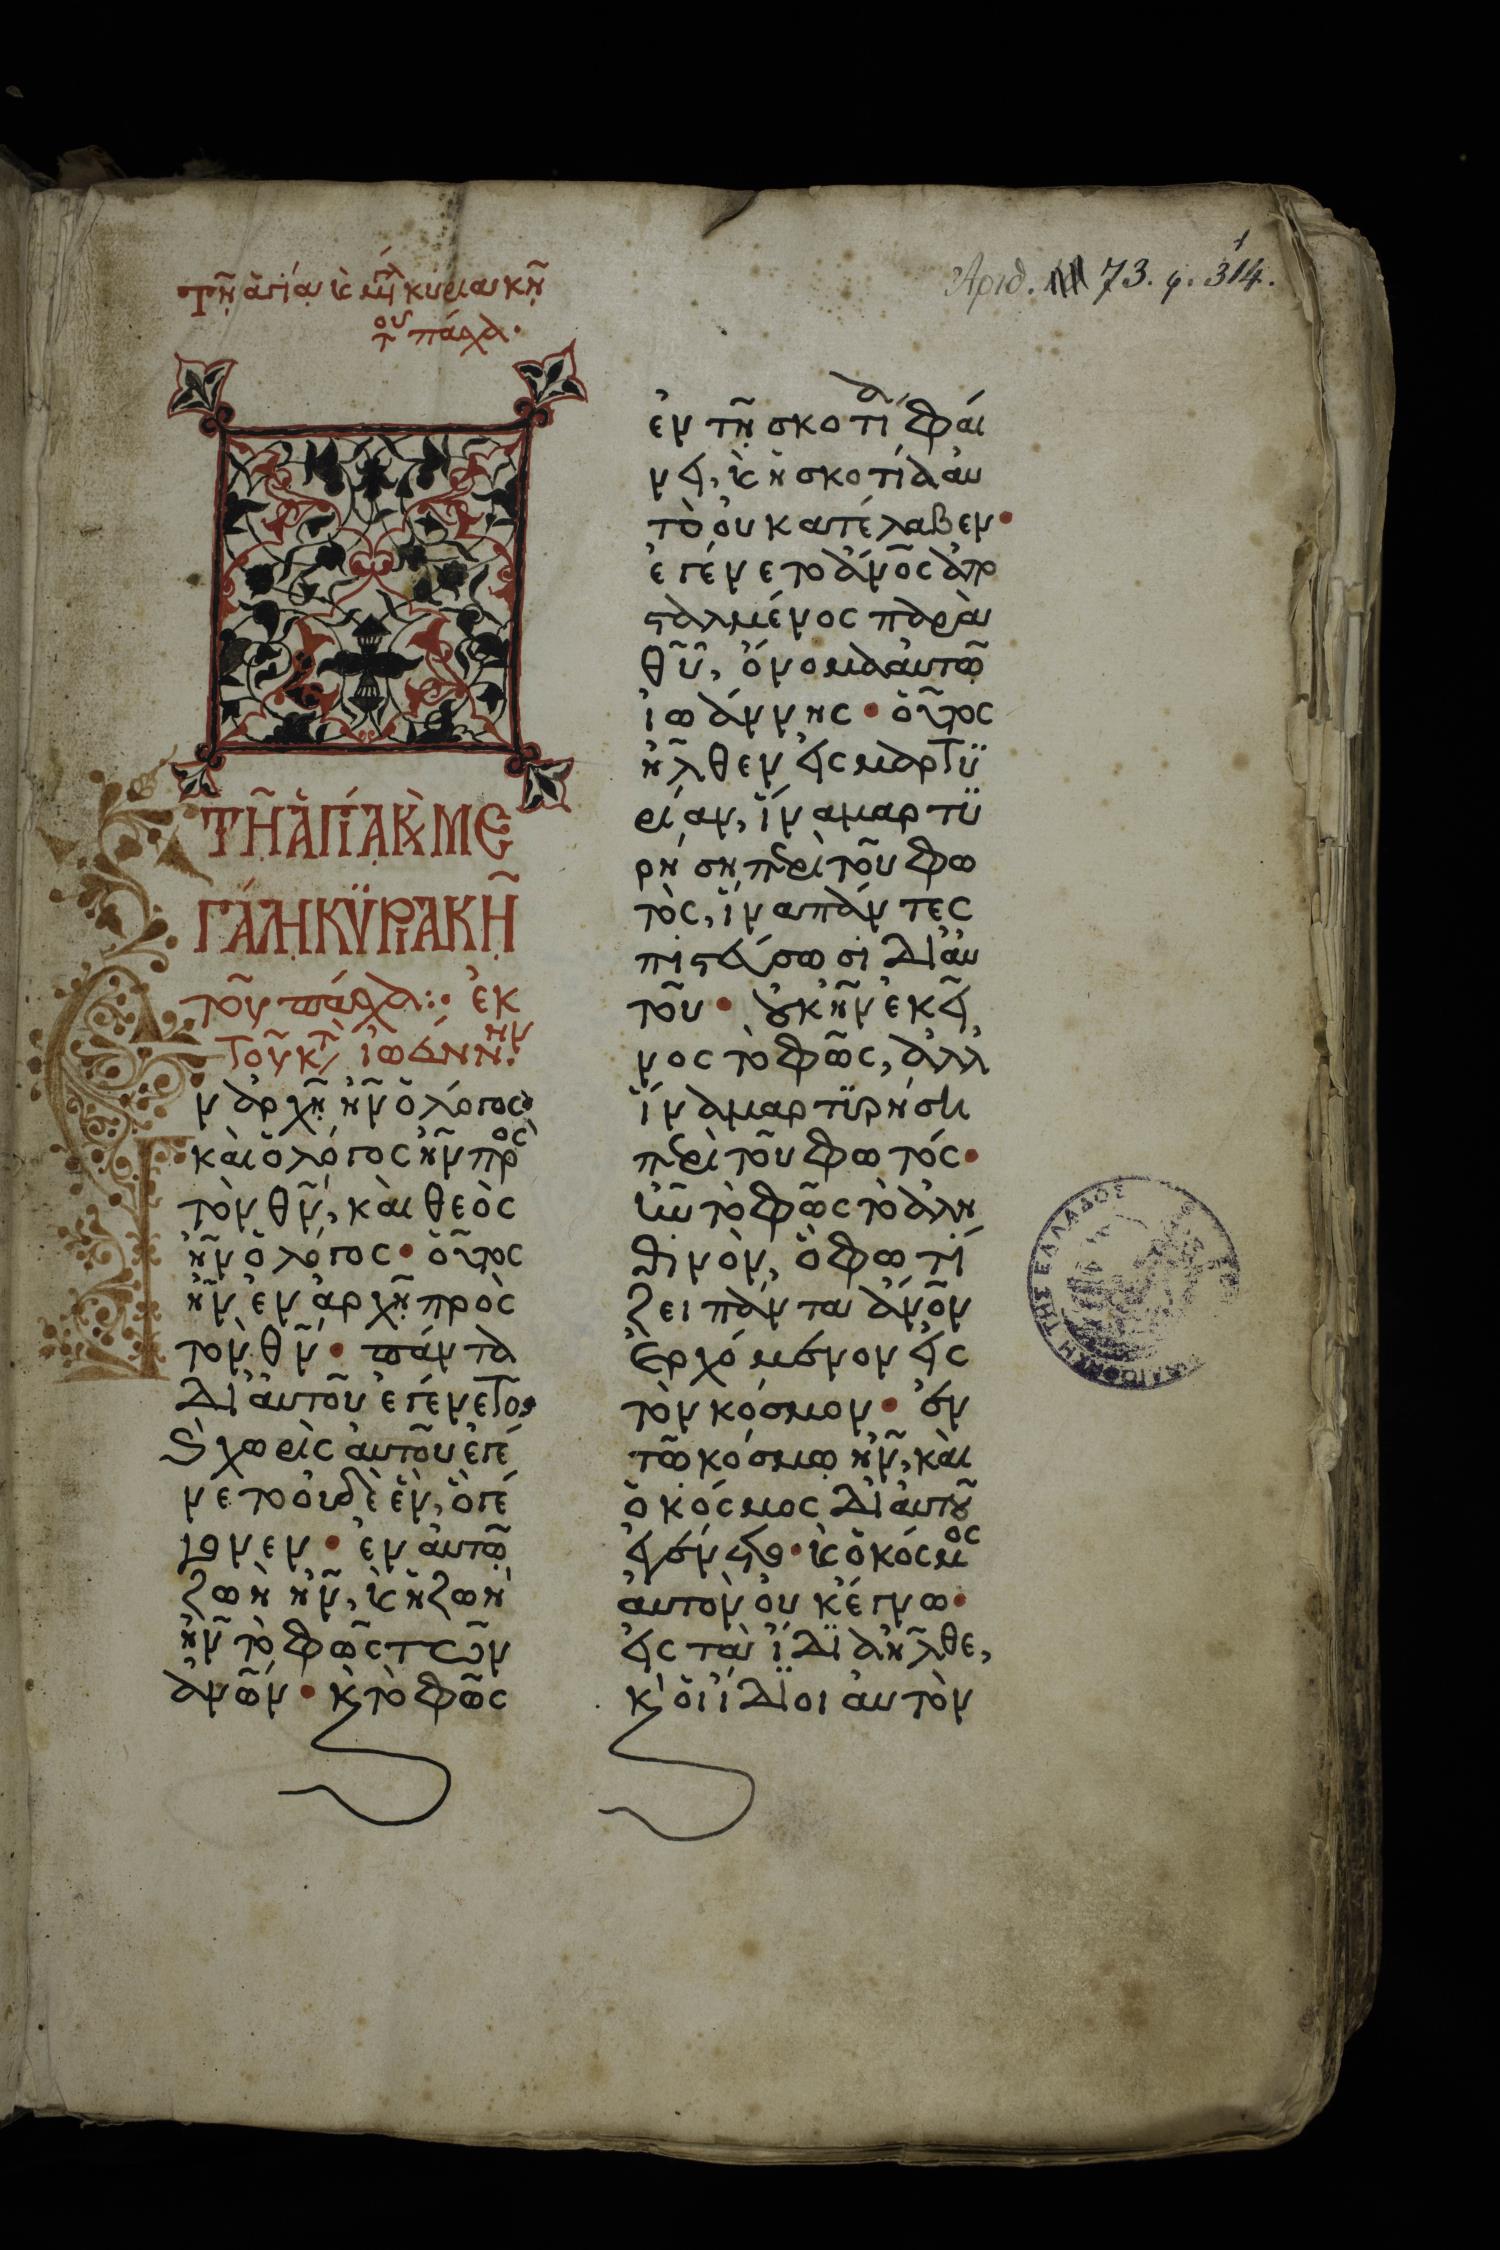 Ἀριθ. 73. φ. 314.
1
τῆ ἁγία κ̀ μεγάλη κυριακῆ
τοῦ πάσχα·
ΤΗ͂ ἉΓΊΑ Κ̀ ΜΕ
ΓΆΛΗ ΚΫΡΙΑΚΗ͂
τοῦ πάσχα: ἐκ
τοῦ κτ̀ ἰωάννην·
Ἐ
ν ἀρχῆ ἦν ὁ λόγος·
καὶ ὁ λόγος ἦν πρὸς
τὸν θν̄, καὶ θεὸς
ἦν ὁ λόγος· οὗτος
ἦν ἐν ἀρχῆ πρὸς
τὸν θν̄· πάντα
δι αὐτοῦ ἐγένετο,
κ̀ χωρὶς αὐτοῦ ἐγέ
νετο οὐδὲ ἕν, ὃ γέ
γονεν· ἐν αὐτῶ
ζωὴ ἦν, κ̀ ἡ ζωὴ
ἦν τὸ φῶς τῶν
ἀν̄ων· κ̀ τὸ φῶς
ἐν τῆ σκοτία φαί
νει, κ̀ ἡ σκοτία αὐ
τὸ οὐ κατέλαβεν·
ἐγένετο ἄν̄ος ἀπε
σταλμένος παρὰ
θῡ, ὄνομα αὐτῶ
ἰωάννης· οὗτος
ἦλθεν εἰς μαρτϋ
ρίαν, ἵνα μαρτϋ
ρήση περὶ τοῦ φω
τὸς, ἵνα πάντες
πιστεύσωσι δι αὐ
τοῦ· οὐκ ἦν ἐκεῖ
νος τὸ φῶς, ἀλλ
ἵνα μαρτϋρήση
περὶ τοῦ φωτός·
ἦν τὸ φῶς τὸ ἀλη
θινὸν, ὃ φωτί
ζει πάντα ἄν̄ον
ἐρχόμενον εἰς
τὸν κόσμον· ἐν
τῶ κόσμω ἦν, καὶ
ὁ κόσμος δι αὐτοῦ
ἐγένετο· κ̀ ὁ κόσμος
αὐτὸν οὐκ ἔγνω·
εἰς τὰ ἴδια ἦλθε,
κ̀ οἱ ἴδιοι αὐτὸν
ΤΗΣ ΕΛΛΑΔΟΣ